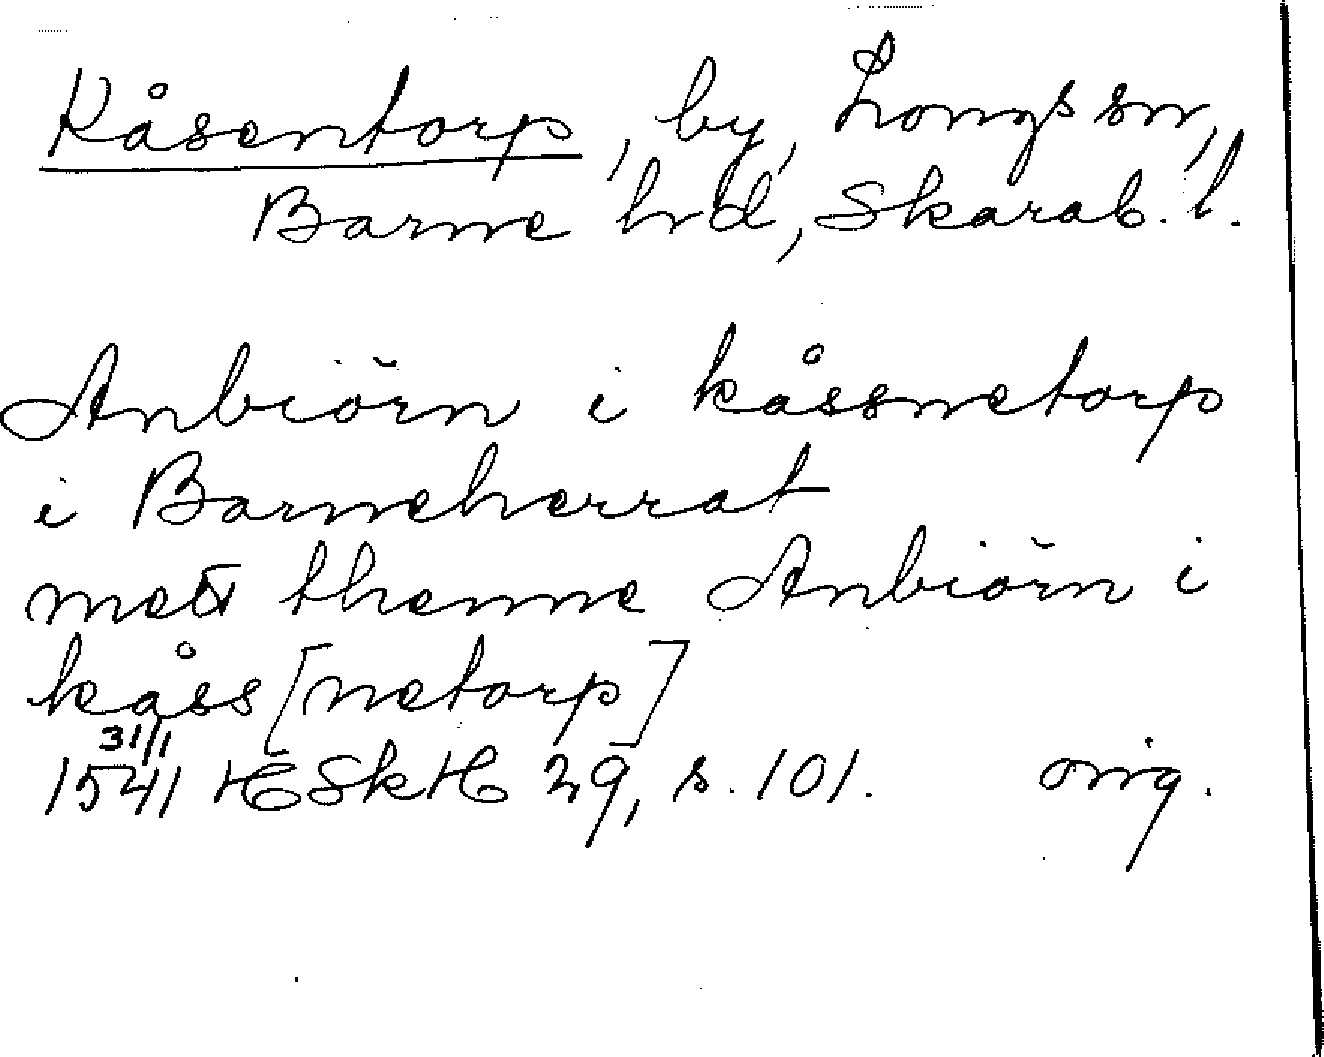 Kåsentorp, by, Longs sn,
Barne hrd, Skarab. l.
Anbiörn i kåssnetorp
i Barneherrat
mett thenne Anbiörn i
kåss[netorp]
31/1
1541 HSkH 29, s. 101. orig.